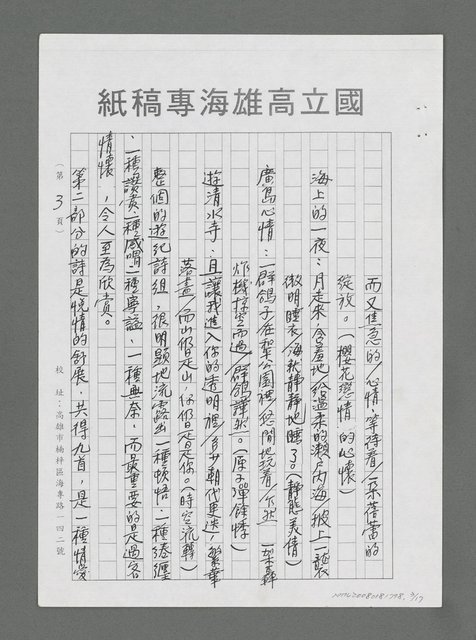 國立高雄海專稿紙
而又焦急的/心情,等待着/一朵蓓蕾的
綻放。(櫻花戀情的心懷)
海上的一夜:月走來,含羞地/給溫柔的瀨戶內海/披上一襲
微明睡衣/海就靜靜地睡了。(靜態美情)
廣島心情:一群鴿子在和平公園裡/悠閒地玩着/乍然一架轟
炸機掠空而過/群鴿譁然。(原子彈餘悸)
遊清水寺:且讓我進入你的透明裡/多少朝代更迭,繁華
落盡/而山仍是山,你仍是是你。(時空流轉)
整個的遊紀詩組,很明顯地流露出一種頓悟,一種繾綣
,一種讚賞,一種感喟,一種寧謐,一種無奈,而最重要的是過客
情懷,令人至為欣賞。
第二部分的詩是悅情的舒展,共得九首,是一種情愛
(第3頁)
校址:高雄市楠梓區海專路一四二號
NMTL20080181778 3/17